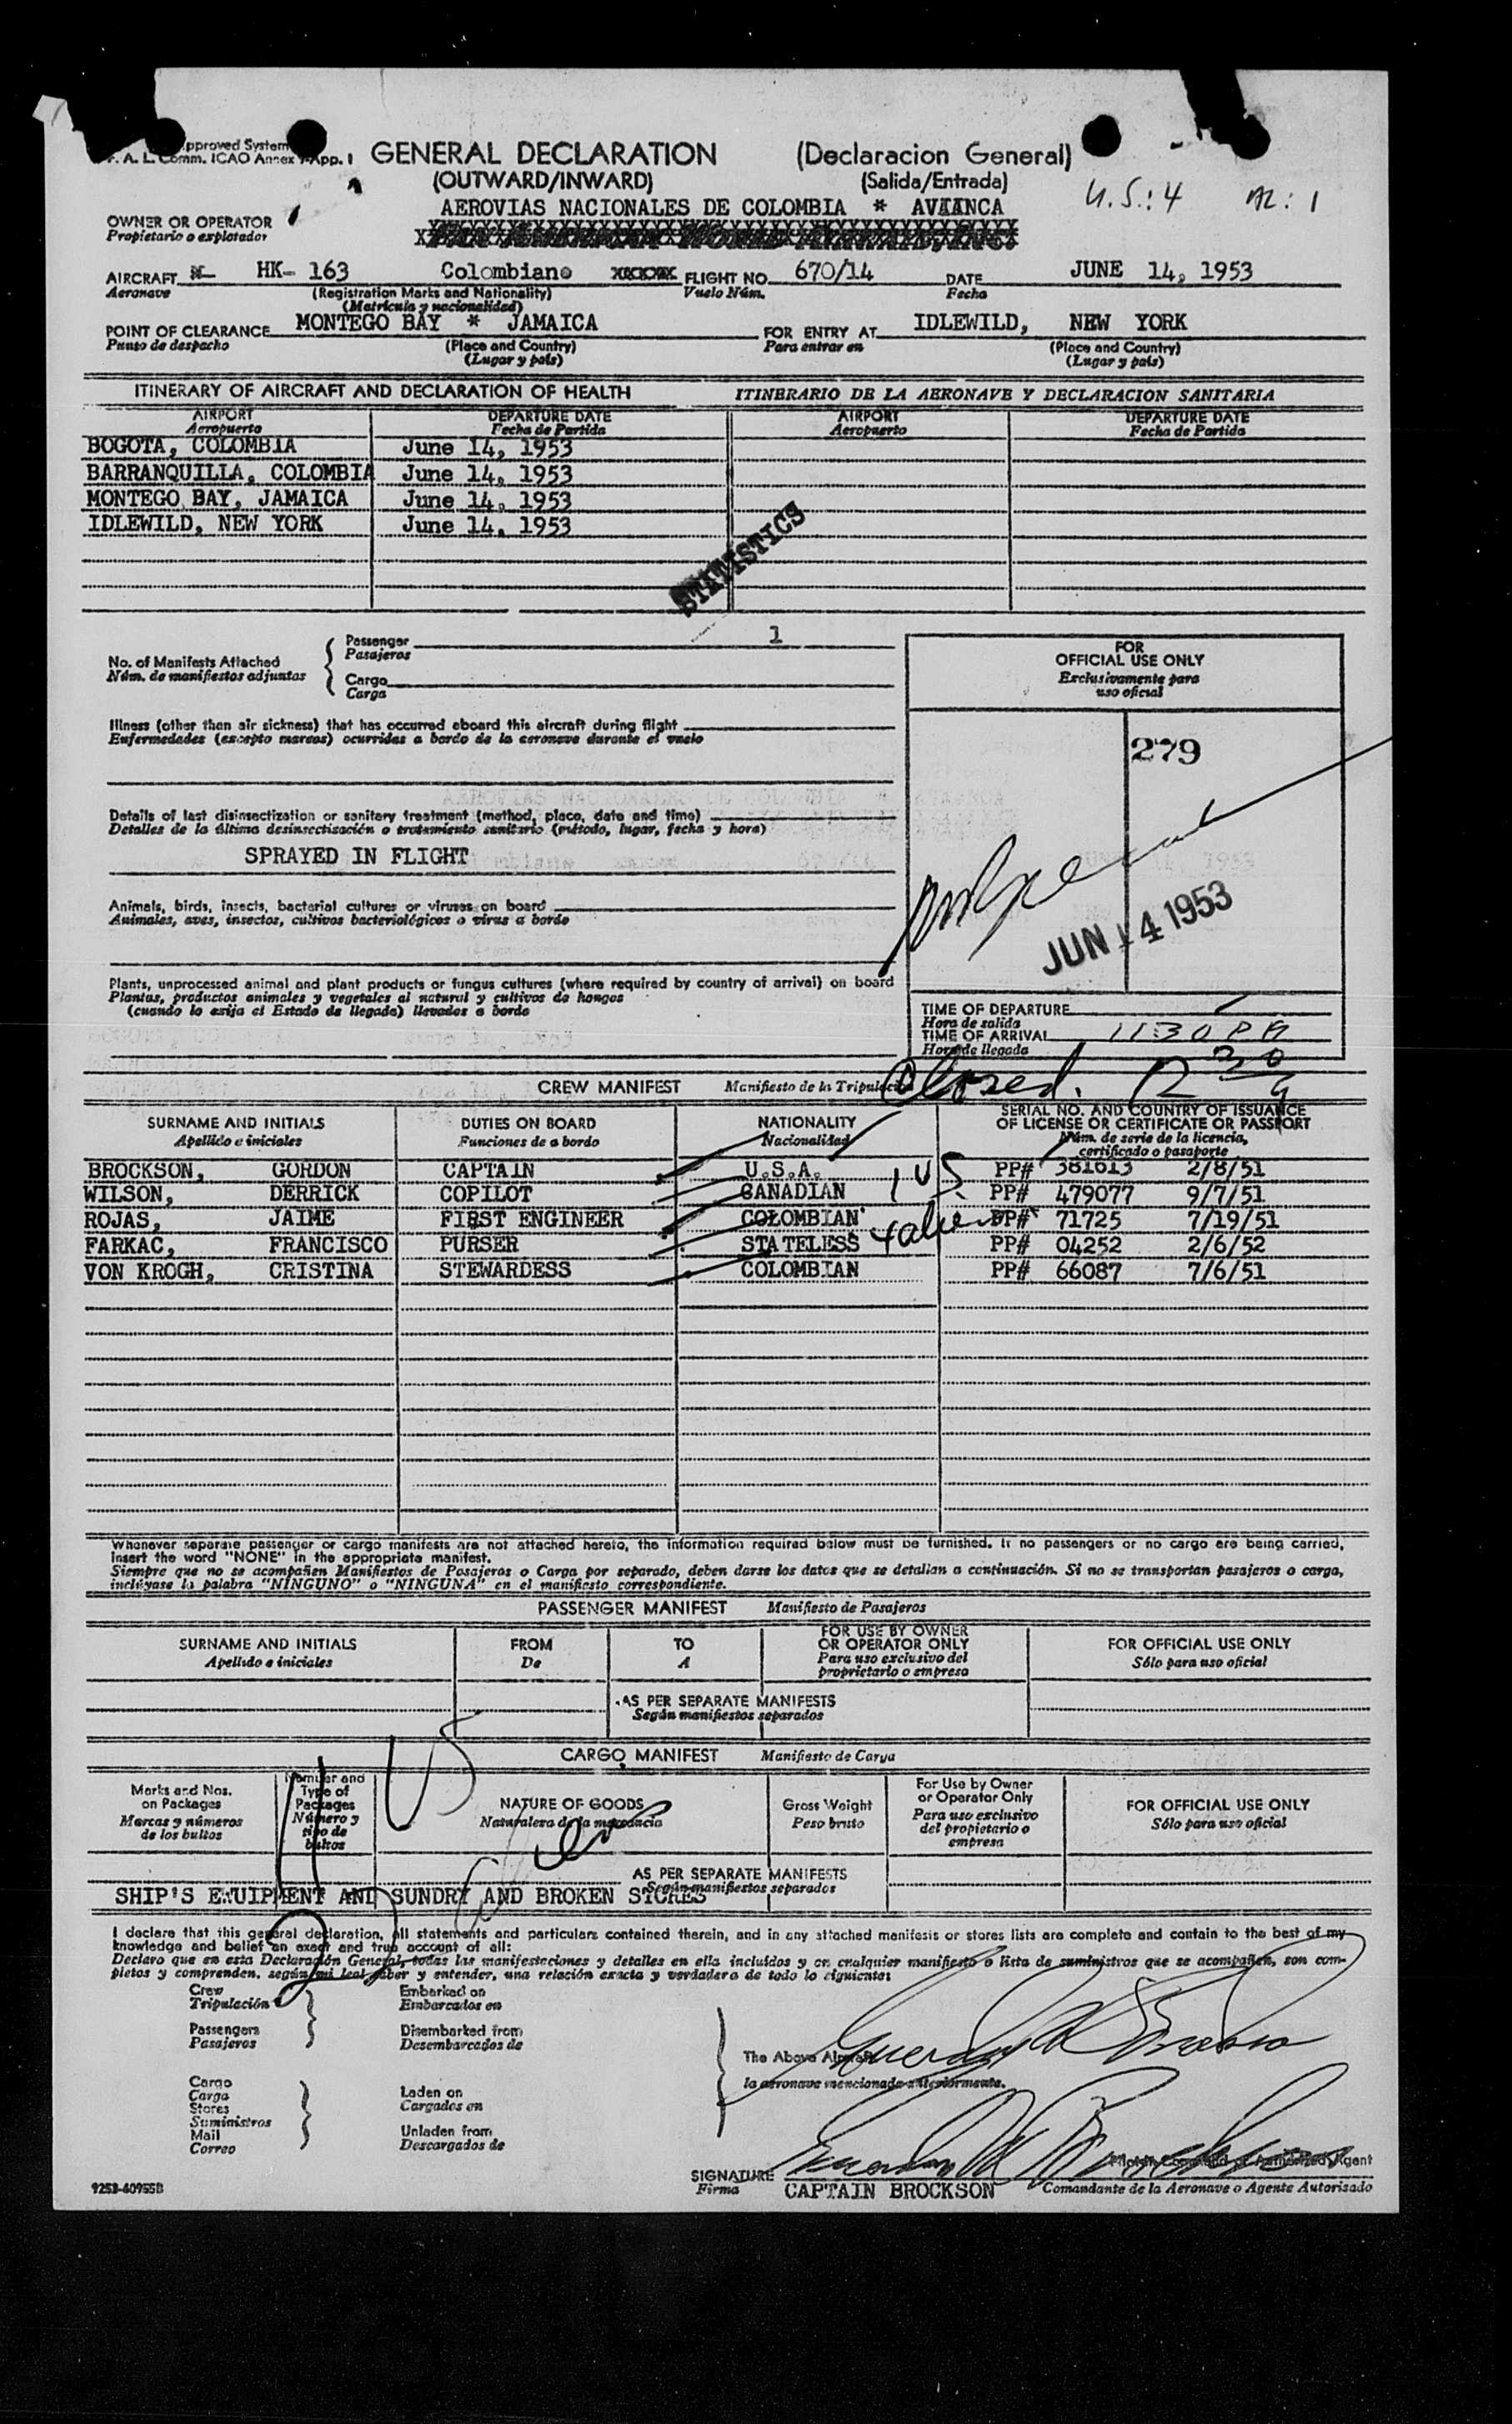 pproved System
F. A. L. Comm. ICAO Annex 9 App. 1
GENERAL DECLARATION (Declaracion General)
(OUTWARD/INWARD) (Salida/Entrada)
U.S.: 4
AL: 1
OWNER OR OPERATOR AEROVIAS NACIONALES DE COLOMBIA * AVIANCA
Propietario o explotador
AIRCRAFT N- HK- 163 Colombiano xxxxxx FLIGHT NO. 670/14 DATE JUNE 14, 1953
Aeronave (Registration Marks and Nationality) Vuelo Núm. Fecha
(Matricula y nacionalidad)
POINT OF CLEARANCE MONTEGO BAY * JAMAICA FOR ENTRY AT IDLEWILD, NEW YORK
Punto de despacho (Place and Country) Para entrar en (Place and Country)
(Lugar y país) (Lugar y país)
ITINERARY OF AIRCRAFT AND DECLARATION OF HEALTH ITINERARIO DE LA AERONAVE Y DECLARACION SANITARIA
AIRPORT DEPARTURE DATE AIRPORT DEPARTURE DATE
Aeropuerto Fecha de Partida Aeropuerto Fecha de Partida
BOGOTA, COLOMBIA June 14, 1953
BARRANQUILLA, COLOMBIA June 14, 1953
MONTEGO BAY, JAMAICA June 14, 1953
IDLEWILD, NEW YORK June 14, 1953
STATISTICS
No. of Manifests Attached
Núm. de manifiestos adjuntos
Passenger 1
Pasajeros
Cargo
Carga
FOR
OFFICIAL USE ONLY
Exclusivamente para
uso oficial
Illness (other than air sickness) that has occurred aboard this aircraft during flight
Enfermedades (excepto mareos) ocurridas a bordo de la aeronave durante el vuelo
279
Details of last disinsectization or sanitary treatment (method, place, date and time)
Detalles de la última desinsectización o tratamiento sanitario (método, lugar, fecha y hora)
SPRAYED IN FLIGHT
Animals, birds, insects, bacterial cultures or viruses on board
Animales, aves, insectos, cultivos bacteriológicos o virus a bordo
JUN 14 1953
Plants, unprocessed animal and plant products or fungus cultures (where required by country of arrival) on board
Plantas, productos animales y vegetales al natural y cultivos de hongos
(cuando lo exija el Estado de llegada) llevados a bordo
TIME OF DEPARTURE
Hora de salida
TIME OF ARRIVAL 1130 P
Hora de llegada
Closed.
CREW MANIFEST Manifiesto de la Tripulación
SURNAME AND INITIALS DUTIES ON BOARD NATIONALITY SERIAL NO. AND COUNTRY OF ISSUANCE
OF LICENSE OR CERTIFICATE OR PASSPORT
Apellido e iniciales Funciones de a bordo Nacionalidad Núm. de serie de la licencia,
certificado o pasaporte
BROCKSON, GORDON CAPTAIN U.S.A. PP# 381613 2/8/51
WILSON, DERRICK COPILOT CANADIAN 1 US PP# 479077 9/7/51
ROJAS, JAIME FIRST ENGINEER COLOMBIAN PP# 71725 7/19/51
FARKAC, FRANCISCO PURSER STATELESS 4 alien PP# 04252 2/6/52
VON KROGH, CRISTINA STEWARDESS COLOMBIAN PP# 66087 7/6/51
Whenever separate passenger or cargo manifests are not attached hereto, the information required below must be furnished. If no passengers or no cargo are being carried,
insert the word "NONE" in the appropriate manifest.
Siempre que no se acompañen Manifiestos de Pasajeros o Carga por separado, deben darse los datos que se detallan a continuación. Si no se transportan pasajeros o carga,
inclúyase la palabra "NINGUNO" o "NINGUNA" en el manifiesto correspondiente.
PASSENGER MANIFEST Manifiesto de Pasajeros
SURNAME AND INITIALS FROM TO FOR USE BY OWNER
OR OPERATOR ONLY FOR OFFICIAL USE ONLY
Apellido e iniciales De A Para uso exclusivo del
propietario o empresa Sólo para uso oficial
AS PER SEPARATE MANIFESTS
Según manifiestos separados
US
CARGO MANIFEST Manifiesto de Carga
Marks and Nos.
on Packages
Marcas y números
de los bultos
Number and
Type of
Packages
Número y
tipo de
bultos
NATURE OF GOODS
Naturaleza de la mercancía
Gross Weight
Peso bruto
For Use by Owner
or Operator Only
Para uso exclusivo
del propietario o
empresa
FOR OFFICIAL USE ONLY
Sólo para uso oficial
AS PER SEPARATE MANIFESTS
Según manifiestos separados
SHIP'S EQUIPMENT AND SUNDRY AND BROKEN STORES
I declare that this general declaration, all statements and particulars contained therein, and in any attached manifests or stores lists are complete and contain to the best of my
knowledge and belief an exact and true account of all:
Declaro que en esta Declaración General, todas las manifestaciones y detalles en ella incluidos y en cualquier manifiesto o lista de suministros que se acompañen, son com-
pletos y comprenden, según mi leal saber y entender, una relación exacta y verdadera de todo lo siguiente:
Crew Embarked on
Tripulación Embarcados en
Passengers Disembarked from
Pasajeros Desembarcados de
The Above Aircraft
la aeronave mencionada anteriormente.
Cargo
Carga Laden on
Stores Cargados en
Suministros
Mail Unladen from
Correo Descargados de
SIGNATURE Pilot in Command or Authorized Agent
Firma CAPTAIN BROCKSON Comandante de la Aeronave o Agente Autorizado
9253-40955B